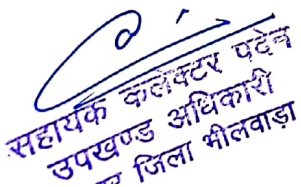 सहायक कलेक्टर पदेन
उपखण्ड अधिकारी
जिला भीलवाड़ा